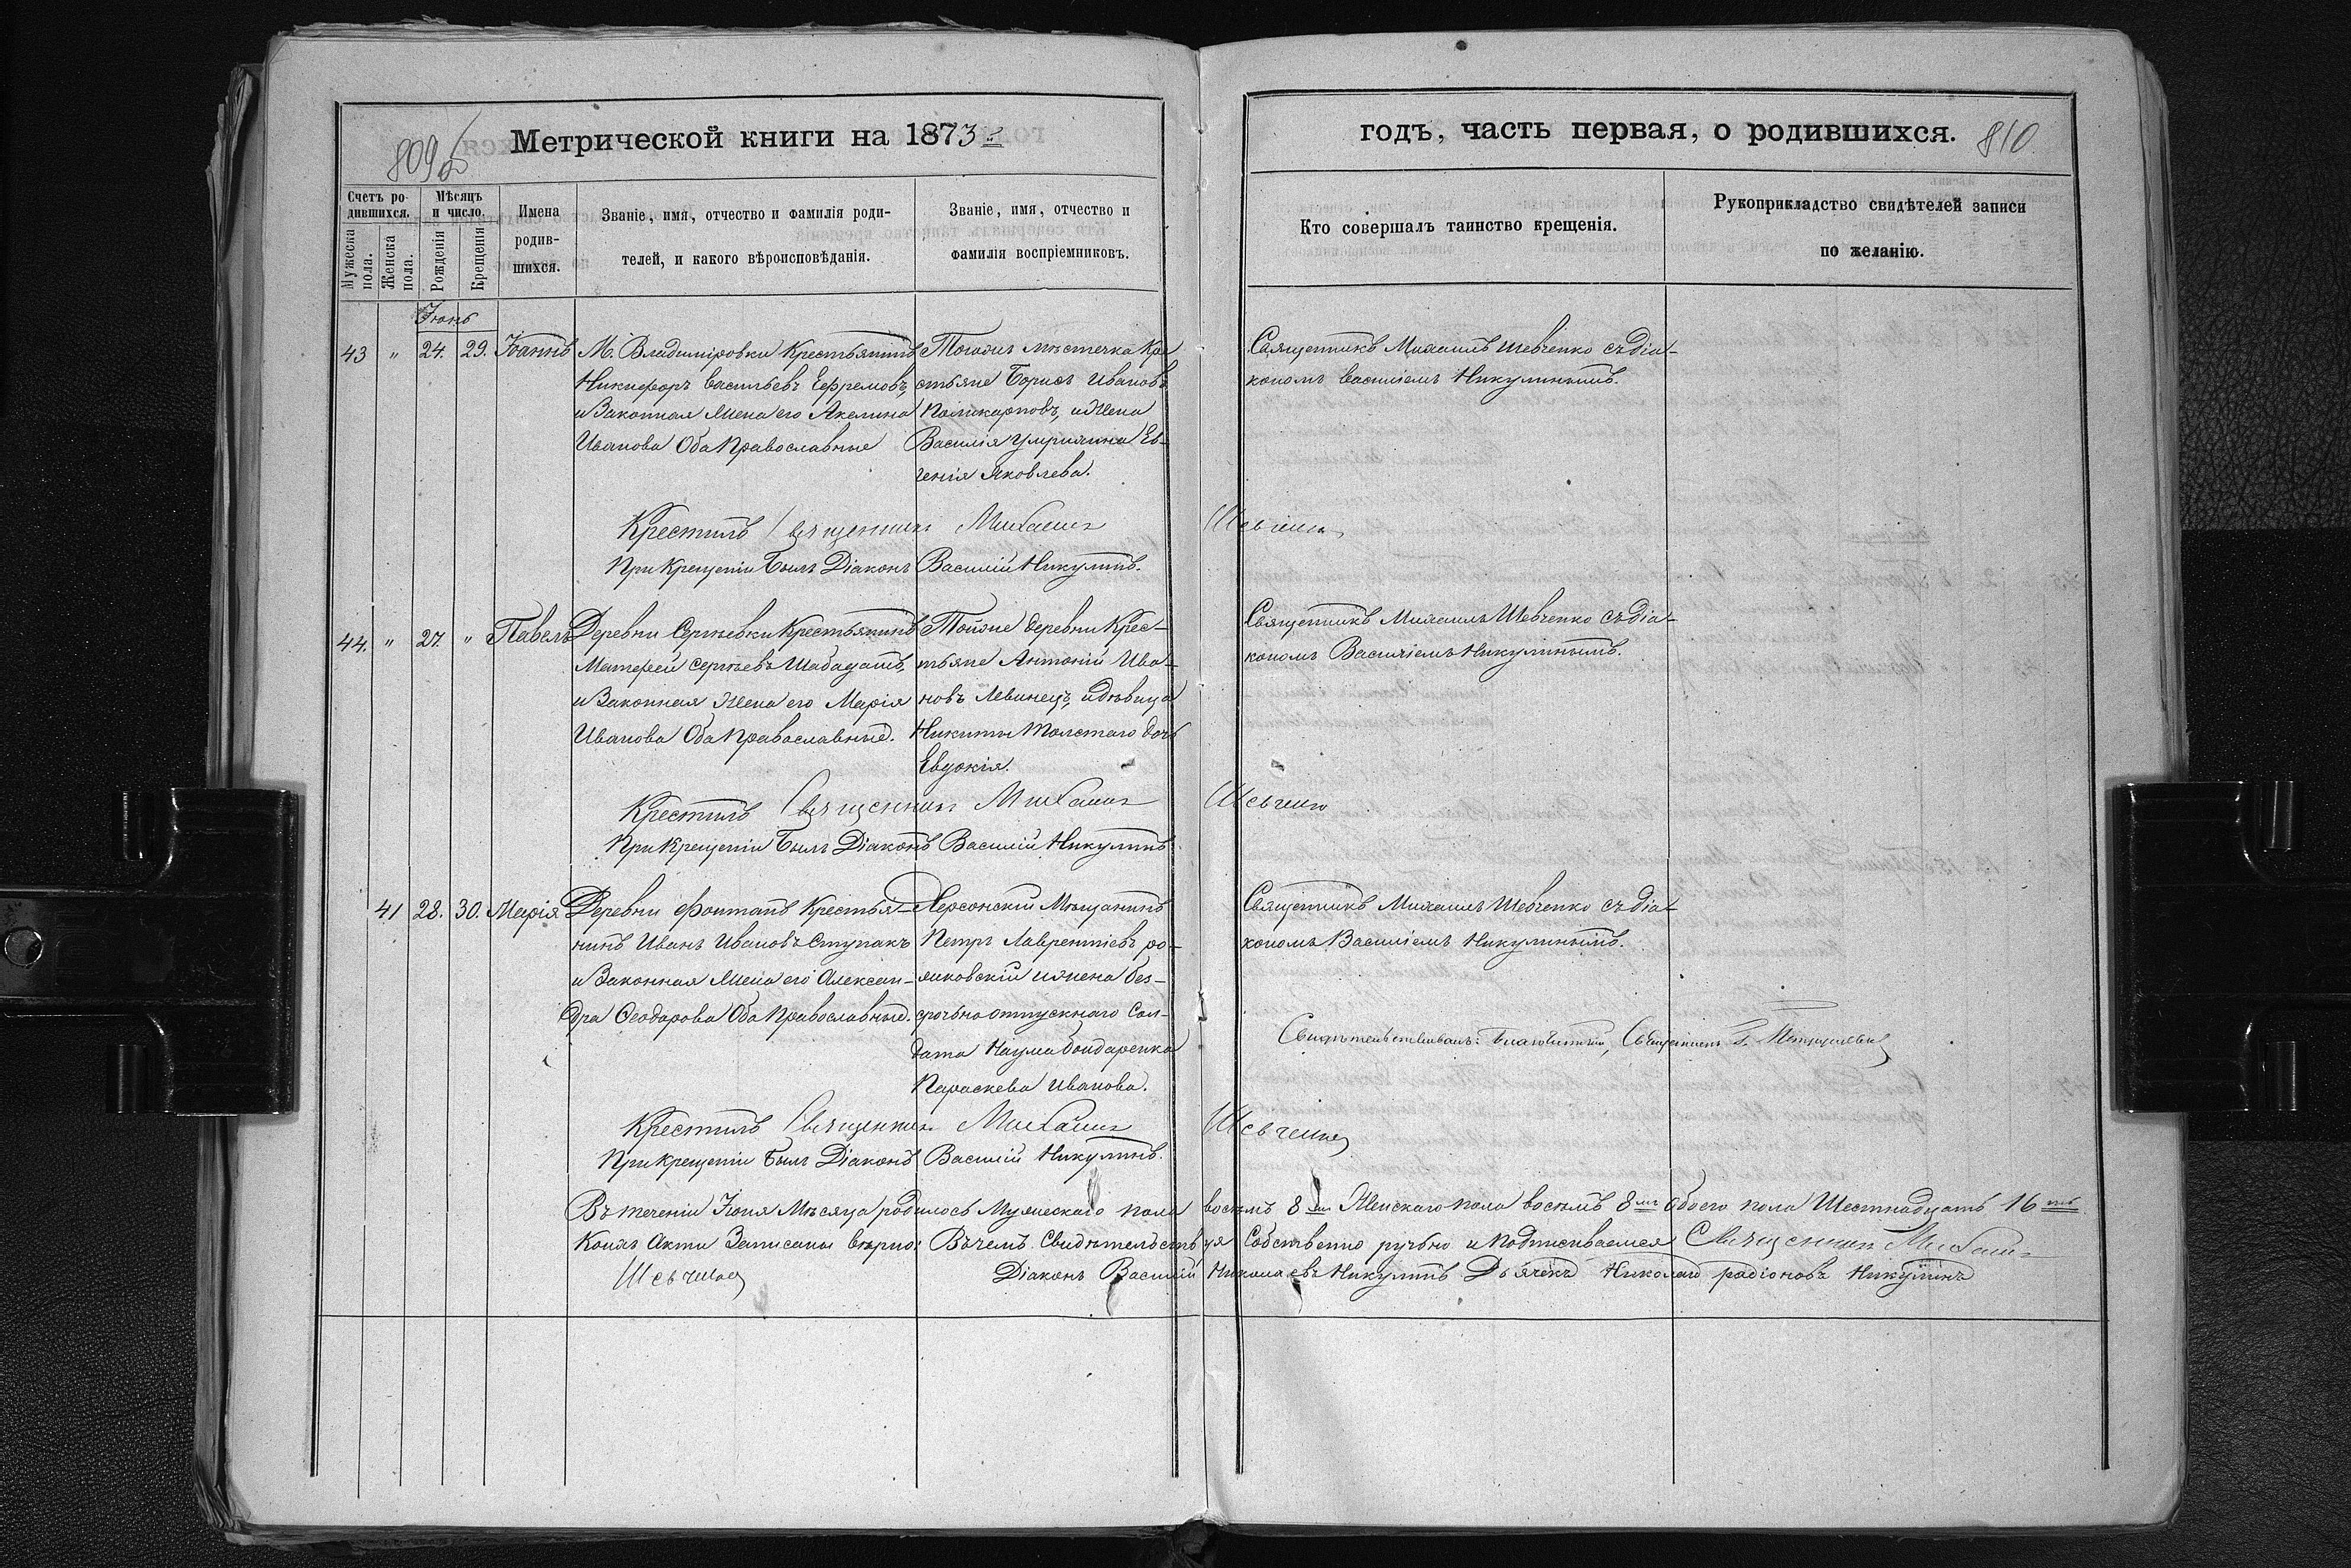 809 об
Метрической книги на 1873 й
годъ, часть первая, о родившихся.
810
Счетъ ро-
дившихся.
Мужеска пола.
Женска пола.
Мѣсяцъ
и число.
Рожденія
Крещенія
Имена
родив-
шихся.
Званіе, имя, отчество и фамилія роди-
телей, и какого вѣроисповѣданія.
Званіе, имя, отчество и
фамилія воспріемниковъ.
Кто совершалъ таинство крещенія.
Рукоприкладство свидѣтелей записи
по желанію.
Іюнь
43 " 24. 29. Іоаннъ
М. Владиміровки Крестьянинъ
Никифоръ Васильевъ Ефремовъ,
и Законная Жена его Акелина
Иванова Оба Православные
Тогоже мѣстечка Кре
стьяне Борисъ Ивановъ
Поликарповъ, и Жена
Василія Умрихина Ев-
генія Яковлева.
Священникъ Михаилъ Шевченко съ діа-
кономъ Василіемъ Никулинымъ.
Крестилъ Священникъ Михаилъ Шевченко
При Крещеніи Былъ Діаконъ Василій Никулинъ.
44. " 27. " Павелъ
Деревни Сергѣевки Крестьянинъ
Матфей Сергѣевъ Шабадашъ,
и Законная Жена его Марія
Иванова Оба Православные.
Тойже деревни Крес-
тьяне Антоній Ива-
новъ Левинецъ, и дѣвица
Никиты Толстаго дочь
Евдокія.
Священникъ Михаилъ Шевченко съ діа-
кономъ Василіемъ Никулинымъ.
Крестилъ Священникъ Михаилъ Шевченко
При Крещеніи Былъ Діаконъ Василій Никулинъ
41 28. 30. Марія
Деревни Фонтанъ Крестья-
нинъ Иванъ Ивановъ Ступакъ
и Законная Жена его Алексан-
дра Ѳеодорова Оба Православные.
Херсонскій Мѣщанинъ
Петръ Лаврентіевъ ро-
и жена без-
срочно отпускнаго Сол-
дата Наума Бондаренка
Параскева Иванова.
Священникъ Михаилъ Шевченко съ діа-
кономъ Василіемъ Никулинымъ.
Свидѣтельствовалъ: Благочинный, Священникъ
Крестилъ Священникъ Михаилъ Шевченко
При Крещеніи Былъ Діаконъ Василій Никулинъ.
Въ теченіи Іюня Мѣсяца родилось Мужескаго пола восемь 8 Женскаго пола восемь 8 обоего пола Шестнадцать 16
Коихъ Акты Записаны вѣрно: Въ чемъ Свидѣтельствуя Собственно ручно и подписываемся Священникъ Михаилъ
Шевченко Діаконъ Василій Николаевъ Никулинъ Дьячекъ Николай радіоновъ Никулинъ